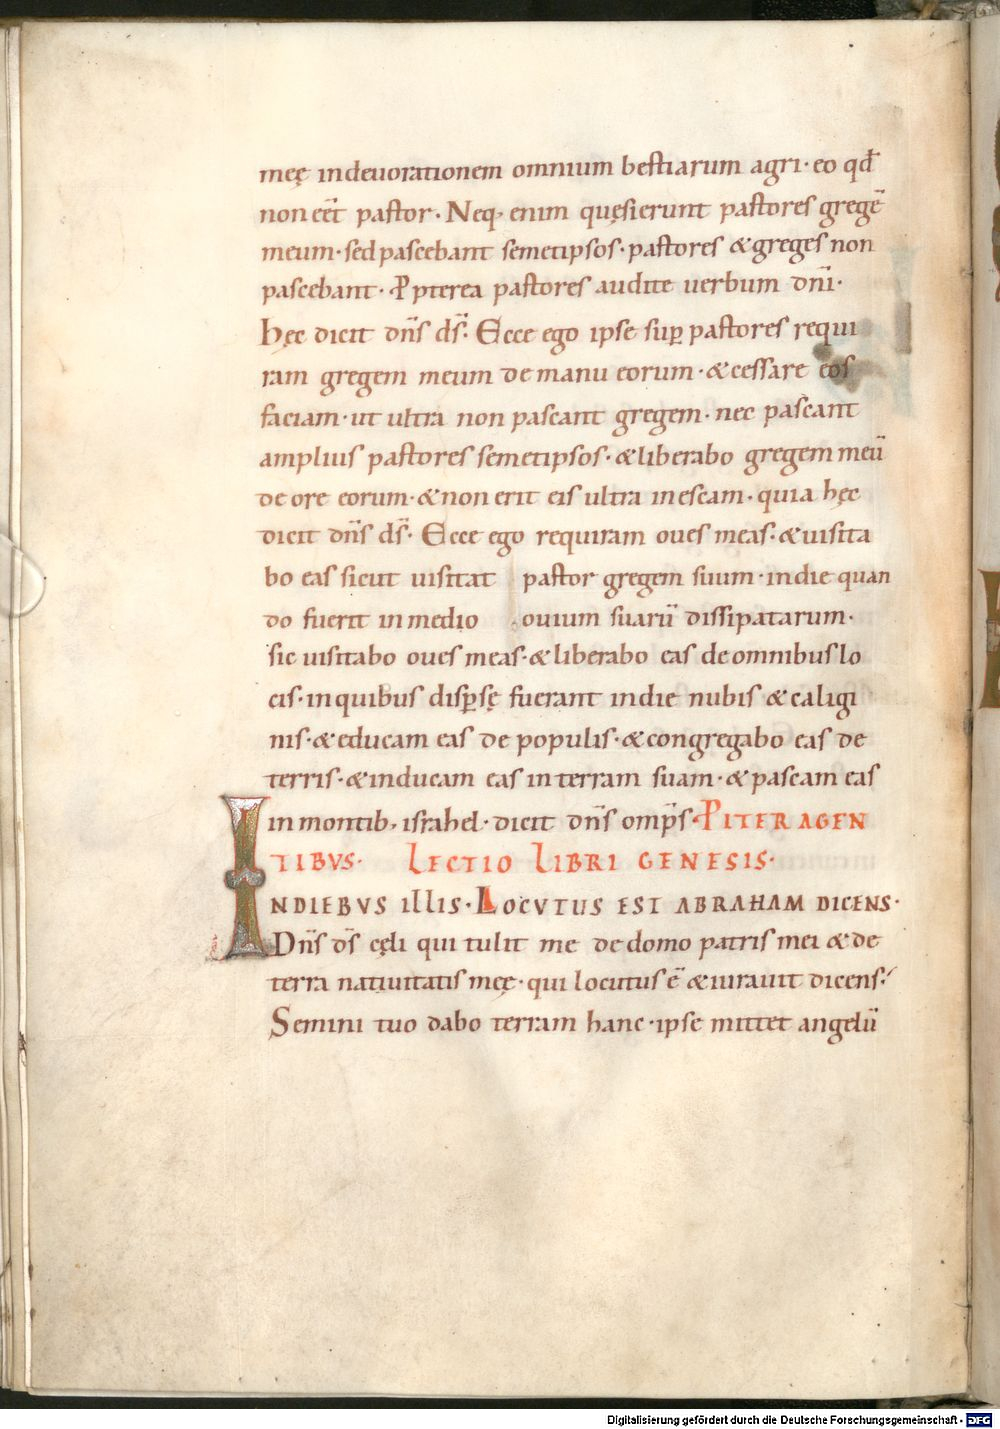 meę indeuorationem omnium bestiarum agri· eo qđ
non eēt pastor· Neq; enim quęsierunt pastores gregē
meum· sed pascebant semetipsos· pastores & greges non
pascebant· Ppterea pastores audite uerbum dn̄i·
hęc dicit dn̄s ds̄· Ecce ego ipse sup pastores requi
ram gregem meum de manu eorum· & cessare eos
faciam· ut ultra non pascant gregem· nec pascant
amplius pastores semetipsos· & liberabo gregem meū
de ore eorum· & non erit eis ultra in escam· quia hęc
dicit dn̄s ds̄· Ecce ego requiram oues meas· & uisita
bo eas sicut uisitat pastor gregem suum· in die quan
do fuerit in medio ouium suarū dissipatarum·
sic uisitabo oues meas· & liberabo eas de omnibus lo
cis· in quibus dispsę fuerant in die nubis & caligi
nis· & educam eas de populis· & congregabo eas de
terris· & inducam eas in terram suam· & pascam eas
in montib; israhel· dicit dn̄s omp̄s· PITER AGEN
TIBVS· LECTIO LIBRI GENESIS·
INDIEBVS ILLIS· LOCVTUS EST ABRAHAM DICENS·
Dn̄s ds̄ cęli qui tulit me de domo patris mei & de
terra natiuitatis meę· qui locutus ē & iurauit dicens·
Semini tuo dabo terram hanc· ipse mittet angelū
Digitalisierung gefördert durch die Deutsche Forschungsgemeinschaft - DFG